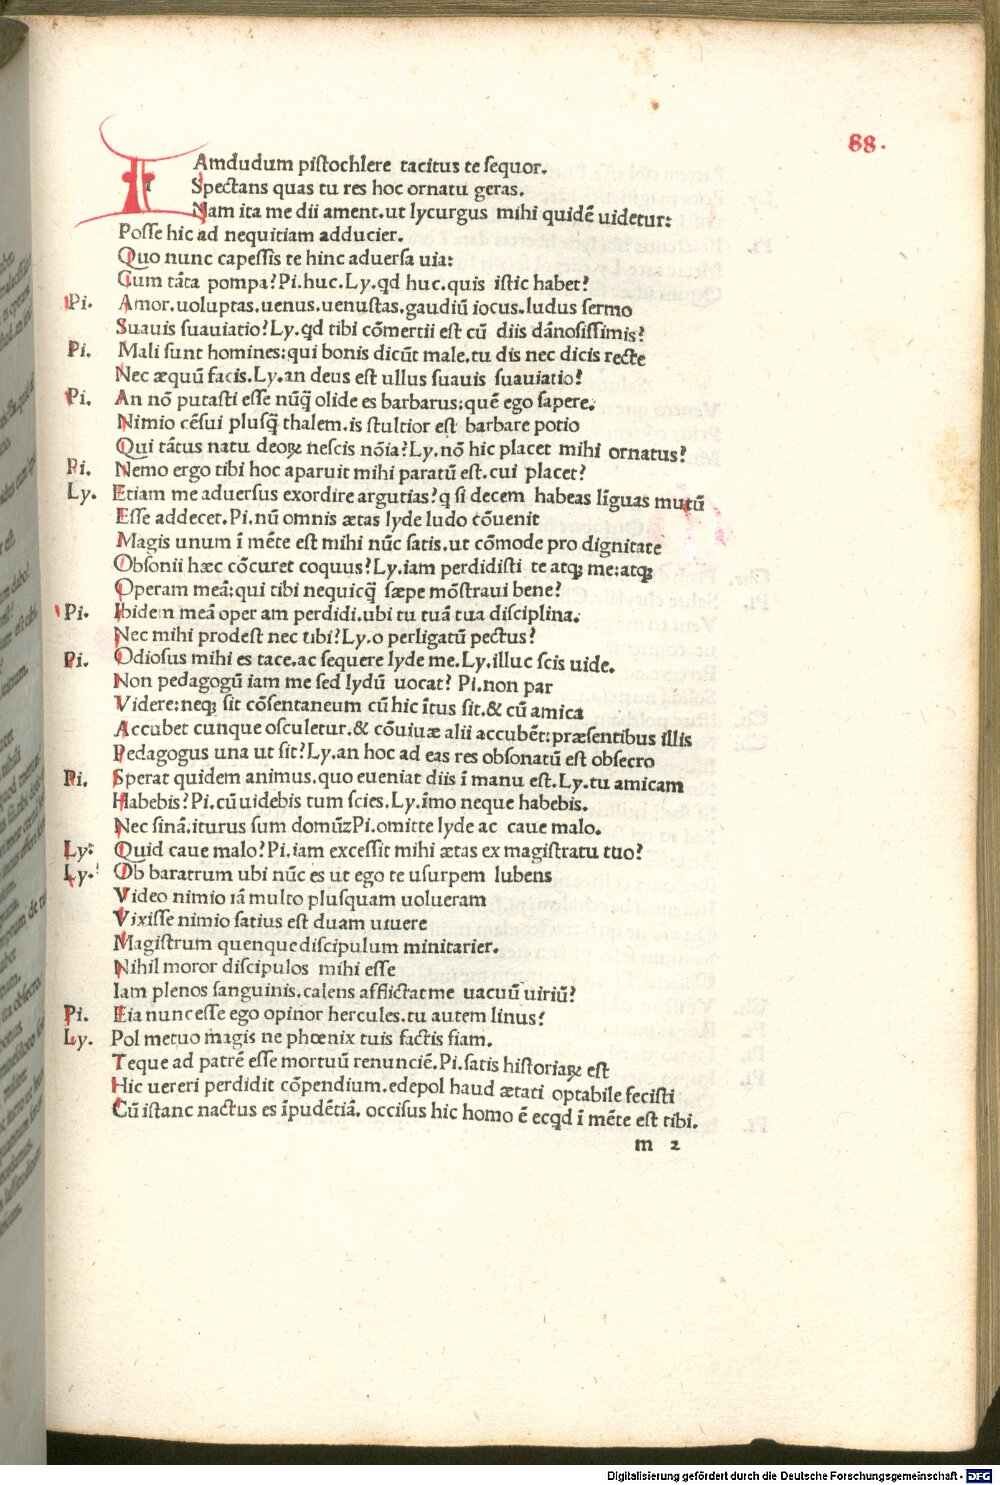 88.
IAmdudum pistochlere tacitus te sequor.
Spectans quas tu res hoc ornatu geras.
Nam ita me dii ament.ut lycurgus mihi quidē uidetur:
Posse hic ad nequitiam adducier.
Quo nunc capessis te hinc aduersa uia:
Cum tāta pompa?Pi.huc.Ly.qd huc.quis istic habet?
Pi. Amor.uoluptas.uenus.uenustas.gaudiū iocus.ludus sermo
Suauis suauiatio?Ly.qd tibi cōmertii est cū diis dānosissimis?
Pi. Mali sunt homines:qui bonis dicūt male.tu dis nec dicis recte
Nec æquū facis.Ly.an deus est ullus suauis suauiatio?
Pi. An nō putasti esse nūq̄ olide es barbarus:quē ego sapere.
Nimio cēsui plusq̄ thalem.is stultior est barbare potio
Qui tātus natu deoꝝ nescis nōia?Ly.nō hic placet mihi ornatus?
Pi. Nemo ergo tibi hoc aparuit mihi paratū est.cui placet?
Ly. Etiam me aduersus exordire argutias?q si decem habeas līguas mutū
Esse addecet.Pi.nū omnis ætas lyde ludo cōuenit
Magis unum ī mēte est mihi nūc satis.ut cōmode pro dignitate
Obsonii hæc cōcuret coquus?Ly.iam perdidisti te atqꝫ me:atqꝫ
Operam meā:qui tibi nequicq̄ sæpe mōstraui bene?
Pi. Ibidem meā oper am perdidi.ubi tu tuā tua disciplina.
Nec mihi prodest nec tibi?Ly.o perligatū pectus?
Pi. Odiosus mihi es tace.ac sequere lyde me.Ly.illuc scis uide.
Non pedagogū iam me sed lydū uocat? Pi.non par
Videre:neqꝫ sit cōsentaneum cū hic ītus sit.& cū amica
Accubet cunque osculetur.& cōuiuæ alii accubēt:præsentibus illis
Pedagogus una ut sit?Ly.an hoc ad eas res obsonatū est obsecro
Pi. Sperat quidem animus.quo eueniat diis ī manu est.Ly.tu amicam
Habebis?Pi.cū uidebis tum scies.Ly.īmo neque habebis.
Nec sinā.iturus sum domūzPi.omitte lyde ac caue malo.
Ly. Quid caue malo?Pi.iam excessit mihi ætas ex magistratu tuo?
Ly. Ob baratrum ubi nūc es ut ego te usurpem lubens
Video nimio iā multo plusquam uolueram
Vixisse nimio satius est duam uiuere
Magistrum quenque discipulum minitarier.
Nihil moror discipulos mihi esse
Iam plenos sanguinis.calens afflictat me uacuū uiriū?
Pi. Eia nunc esse ego opinor hercules.tu autem linus?
Ly. Pol metuo magis ne phœnix tuis factis fiam.
Teque ad patrē esse mortuū renunciē.Pi.satis historiaꝝ est
Hic uereri perdidit cōpendium.edepol haud ætati optabile fecisti
Cū istanc nactus es īpudētiā. occisus hic homo ē ecqd ī mēte est tibi.
m 2
Digitalisierung gefördert durch die Deutsche Forschungsgemeinschaft - DFG